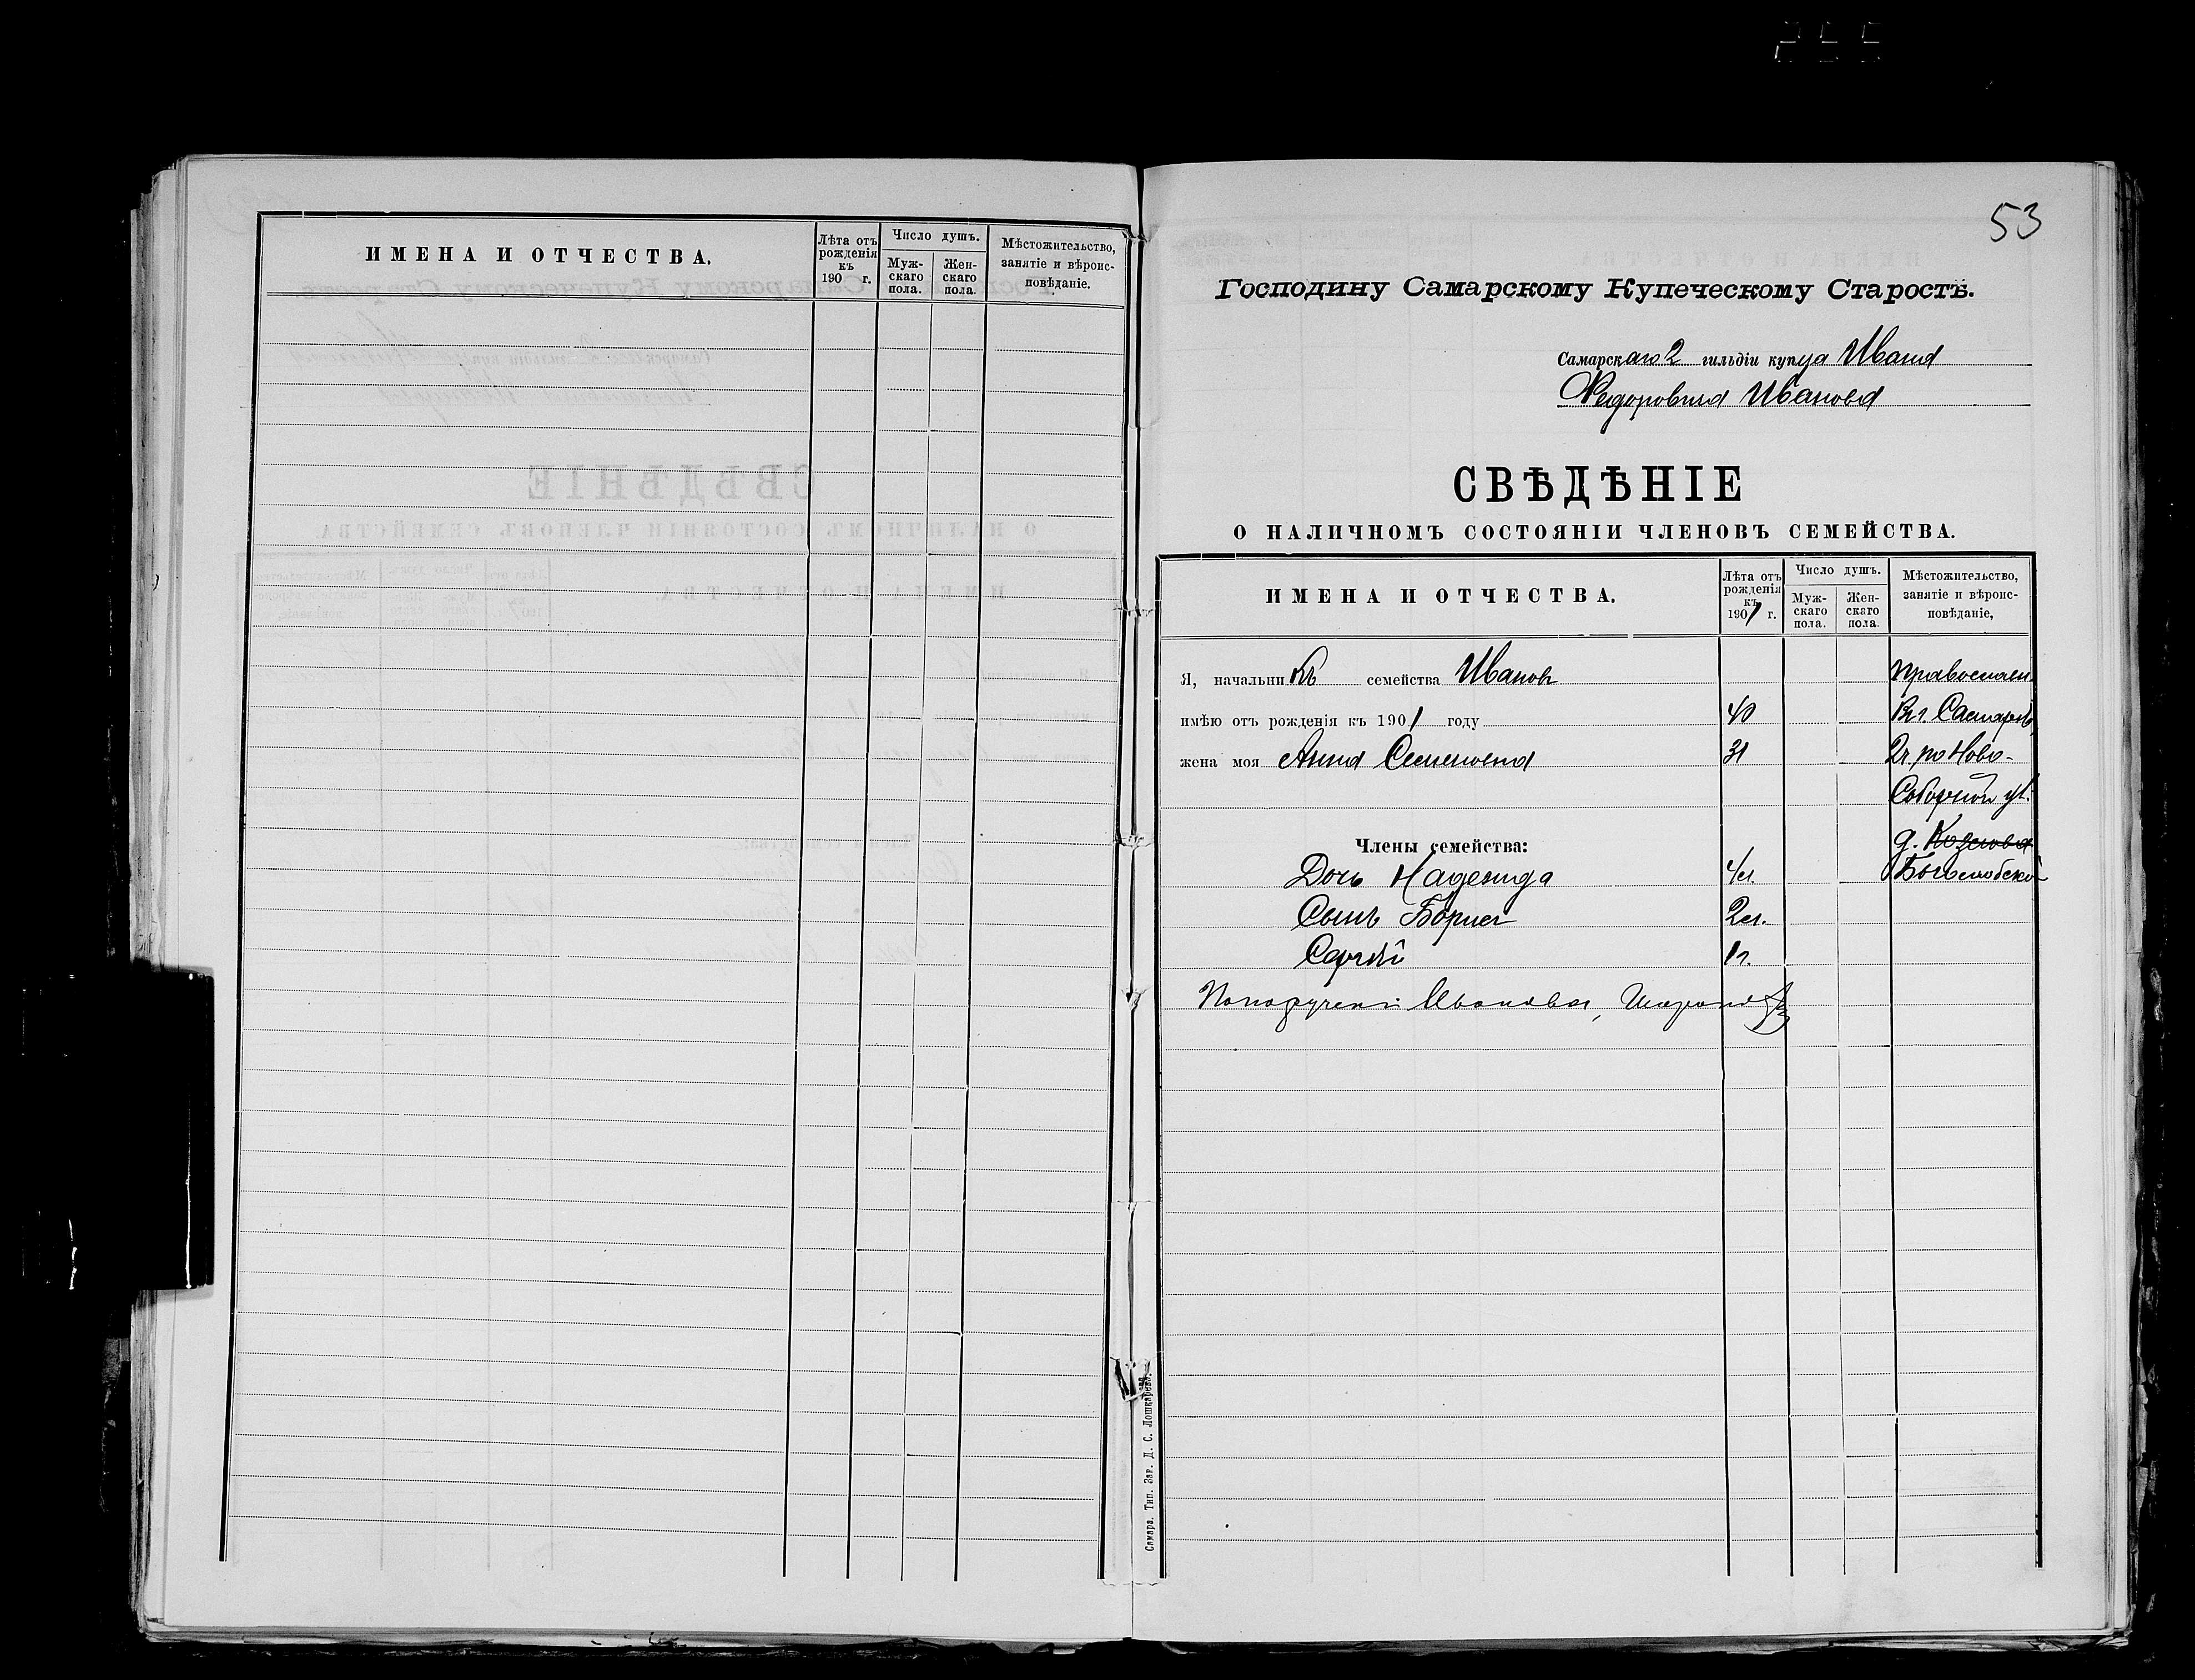 ИМЕНА И ОТЧЕСТВА.
Лѣта отъ рожденія къ 190 г.
Число душъ.
Мужскаго пола.
Женскаго пола.
Мѣстожительство, занятіе и вѣроисповѣданіе.
53
Господину Самарскому Купеческому Старостѣ.
Самарскаго 2 гильдіи купца Ивана
Федоровича Иванова
СВѢДѢНІЕ
О НАЛИЧНОМЪ СОСТОЯНІИ ЧЛЕНОВЪ СЕМЕЙСТВА.
ИМЕНА И ОТЧЕСТВА.
Лѣта отъ рожденія къ 1901 г.
Число душъ.
Мужскаго пола.
Женскаго пола.
Мѣстожительство, занятіе и вѣроисповѣданіе,
Я, начальникъ семейства Ивановъ
имѣю отъ рожденія къ 1901 году 40
жена моя Анна Семеновна 31
Православн.
Въ г. Самарѣ,
2ч. по Ново-
Соборной ул.
д. Козлова
Члены семейства:
Дочь Надежда 4л.
Сынъ Борисъ 2л.
Сергѣй 1г.
По порученію Иванова,
Самара. Тип. Зав. Д. С. Лошкарева.